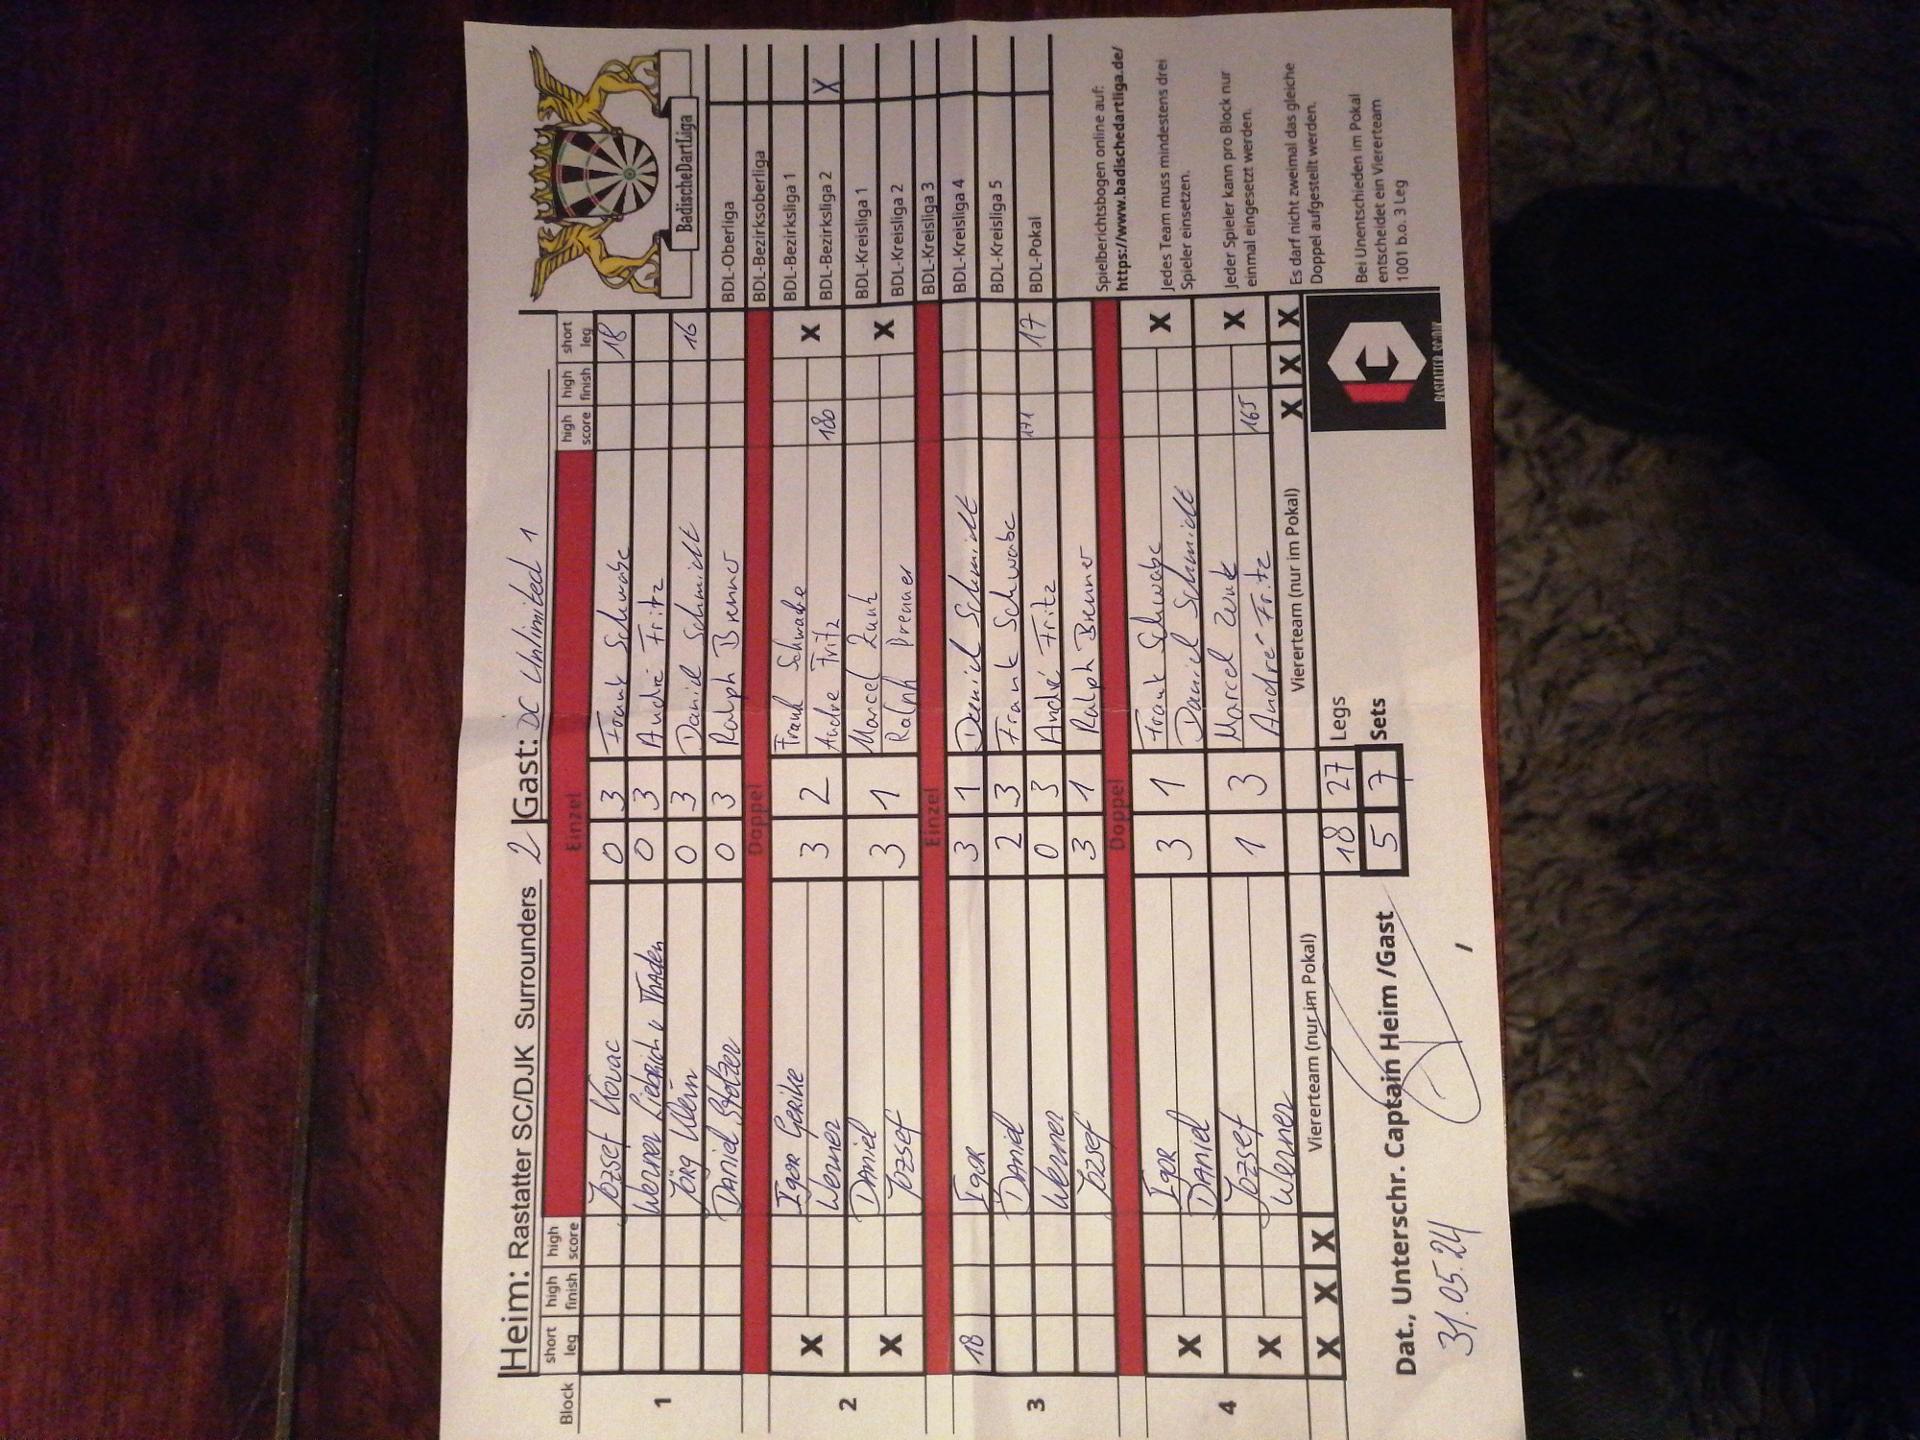 Heim: Rastatter SC/DJK Surrounders 2 Gast: DC Unlimited 1
Block short leg high finish high score Einzel high score high finish short leg
1
József Kovac 0 3 Frank Schwabe 18
Werner Liebrich v Thaden 0 3 André Fritz
Jörg Klein 0 3 Daniel Schmidt 16
Daniel Stelzer 0 3 Ralph Brenner
Doppel
2
X Igor Gerike 3 2 Frank Schwabe X
Werner Andre Fritz 180
X Daniel 3 1 Marcel Zunk X
József Ralph Brenner
Einzel
3
18 Igor 3 1 Daniel Schmidt
Daniel 2 3 Frank Schwabe
Werner 0 3 André Fritz 171 17
József 3 1 Ralph Brenner
Doppel
4
X Igor 3 1 Frank Schwabe X
Daniel Daniel Schmidt
X József 1 3 Marcel Zunk X
Werner Andre Fritz 165
X X X Viererteam (nur im Pokal) Viererteam (nur im Pokal) X X X
18 27 Legs
Dat., Unterschr. Captain Heim /Gast 5 7 Sets
31.05.24
BadischeDartLiga
BDL-Oberliga
BDL-Bezirksoberliga
BDL-Bezirksliga 1
BDL-Bezirksliga 2 X
BDL-Kreisliga 1
BDL-Kreisliga 2
BDL-Kreisliga 3
BDL-Kreisliga 4
BDL-Kreisliga 5
BDL-Pokal
Spielberichtsbogen online auf:
https://www.badischedartliga.de/
Jedes Team muss mindestens drei
Spieler einsetzen.
Jeder Spieler kann pro Block nur
einmal eingesetzt werden.
Es darf nicht zweimal das gleiche
Doppel aufgestellt werden.
Bei Unentschieden im Pokal
entscheidet ein Viererteam
1001 b.o. 3 Leg